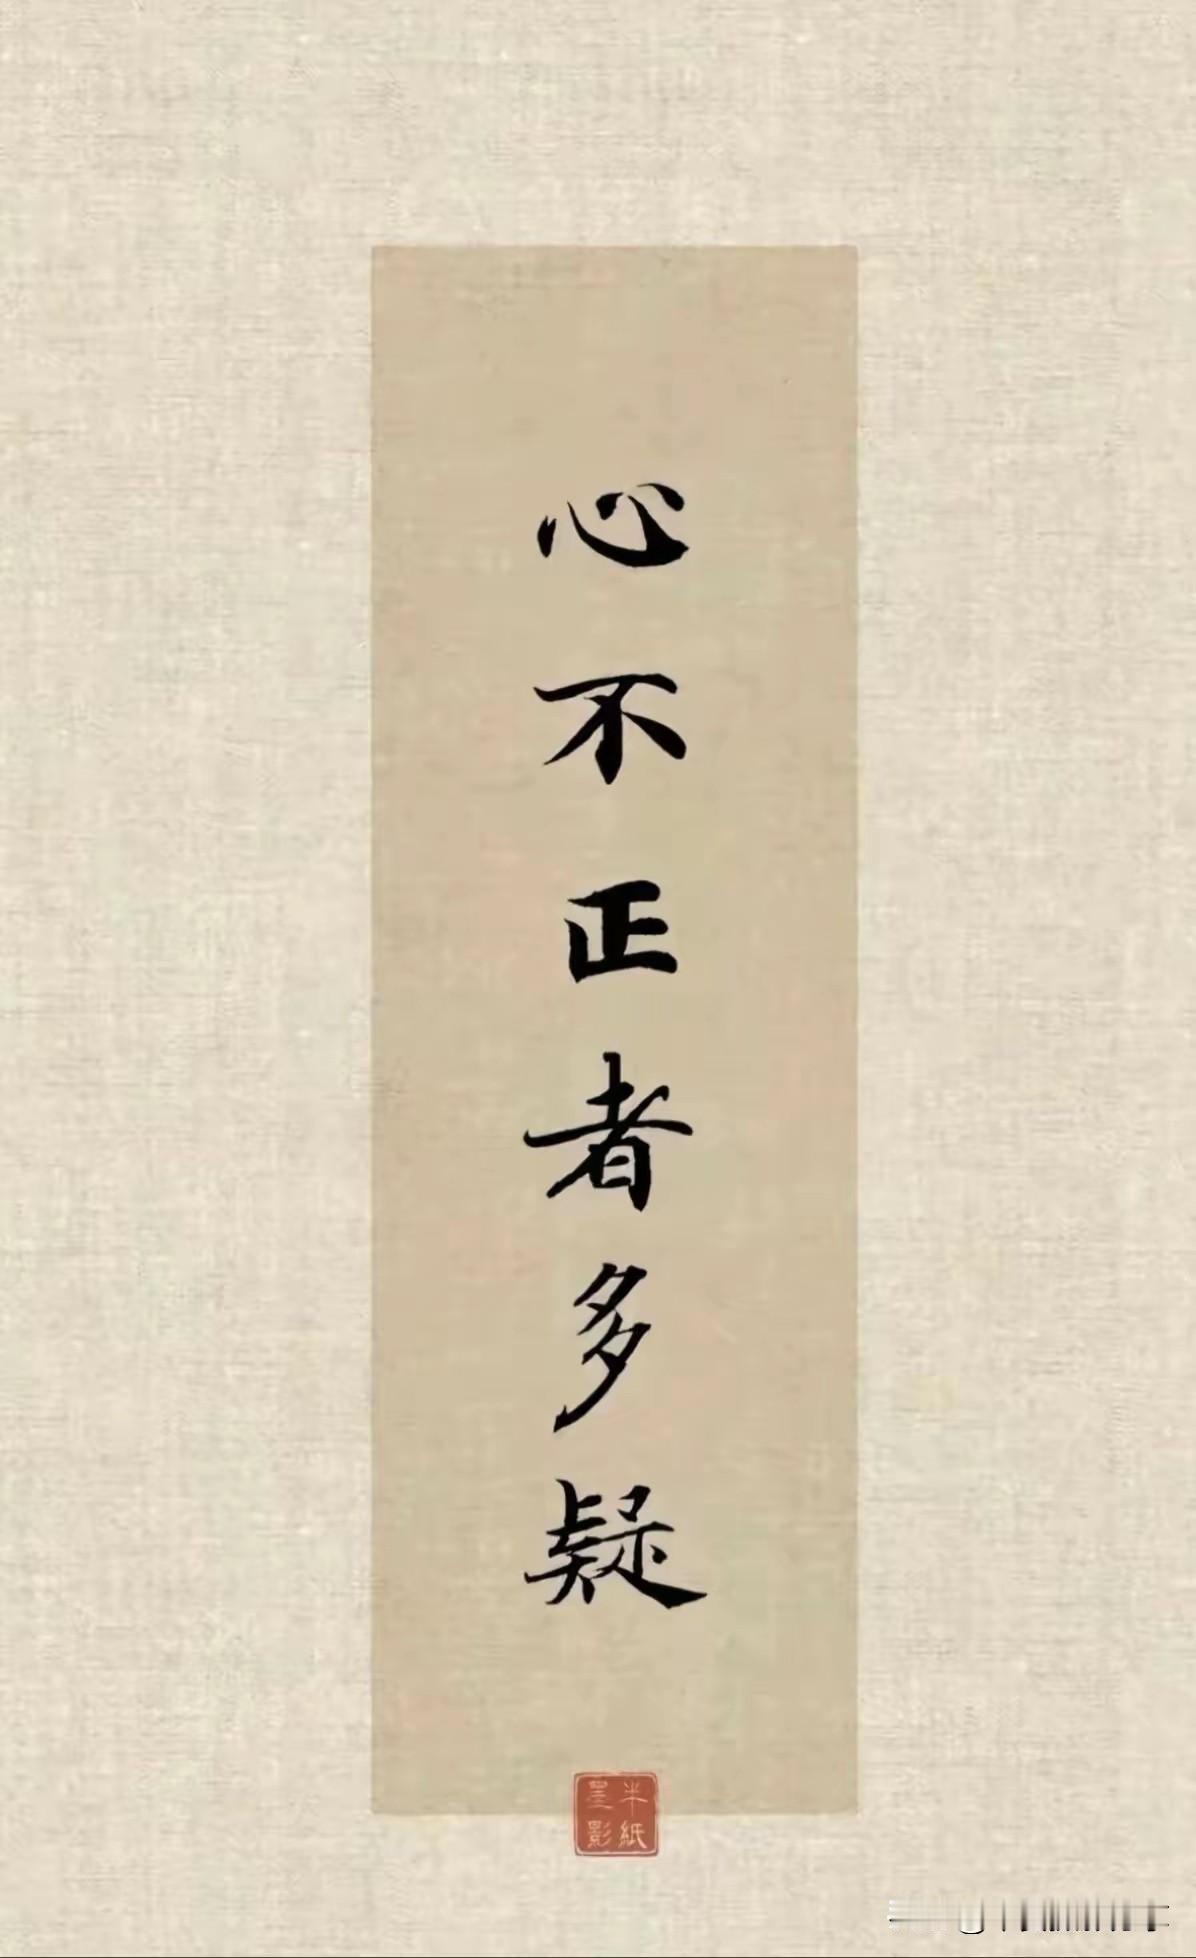 心不正者多疑
半紙
星影